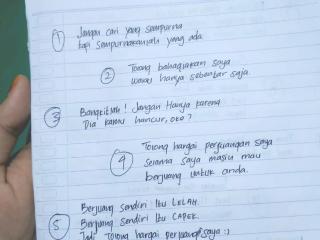 1 Jangan cari yang sempurna
tapi sempurnakanlah yang ada
2 Tolong bahagiakan saya
walau hanya sebentar saja
3 Bangkitlah! Jangan Hanya karena
Dia kamu hancur, oke?
4 Tolong hargai perjuangan saya
selama saya masih mau
berjuang untuk anda.
5 Berjuang sendiri itu LELAH.
Berjuang sendiri itu CAPEK.
Jadi Tolong hargai perjuangan saya :)